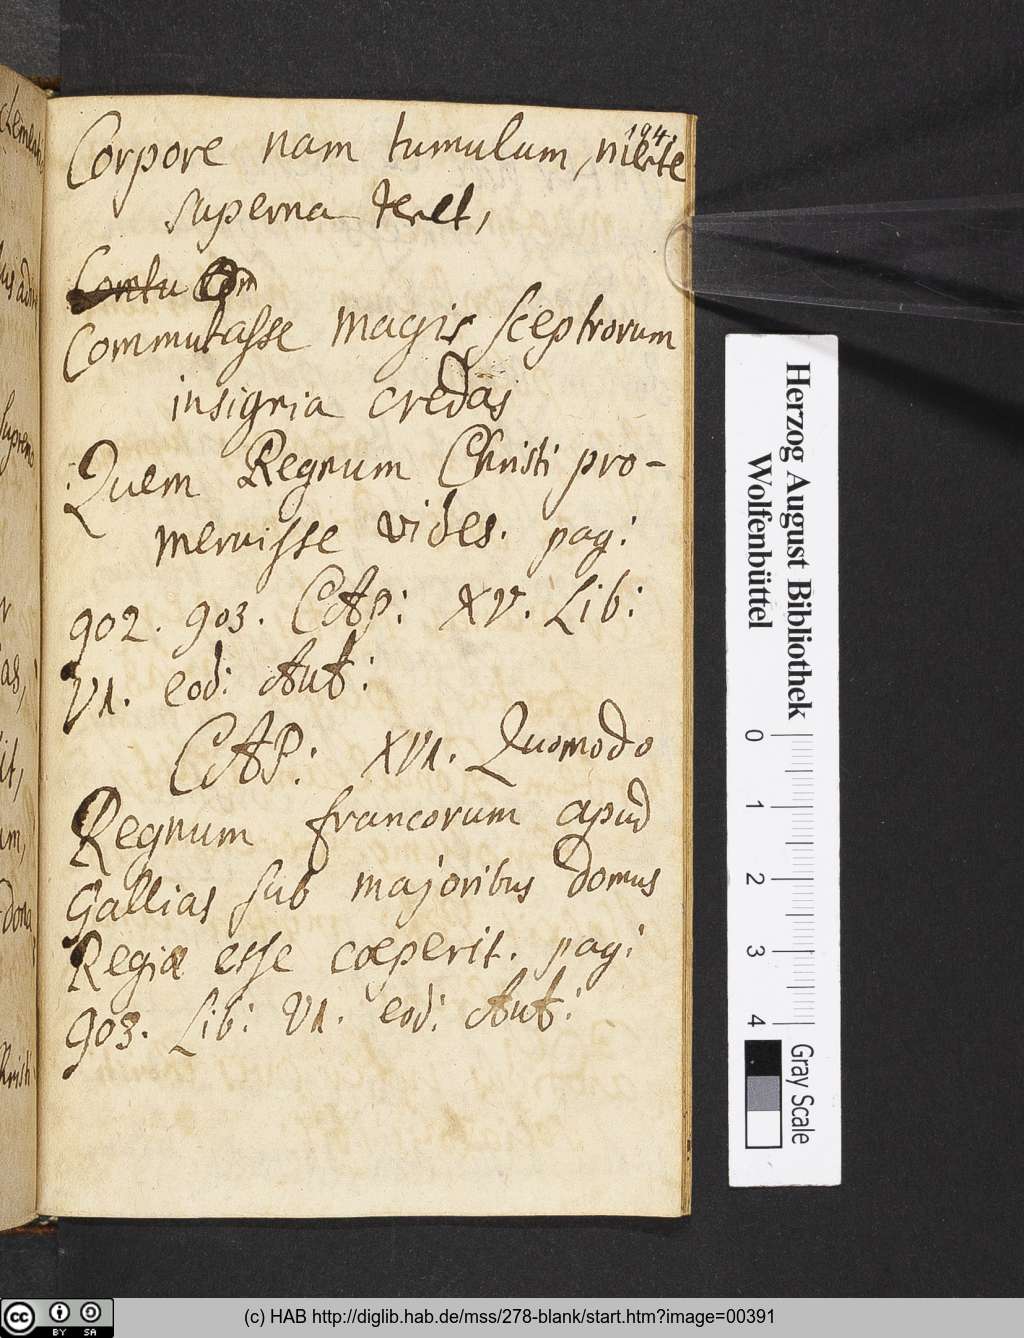 194.
Corpore nam tumulum, mente
superna tenet,
Commutasse magis sceptrorum
insignia credas
Quem Regnum Christi pro-
meruisse vides. pag:
902. 903. CAP: XV. Lib:
VI. eod: Aut:
CAP: XVI. Quomodo
Regnum francorum apud
Gallias sub majoribus domus
Regiæ esse cœperit. pag:
903. Lib: VI. eod: Aut:
Herzog August Bibliothek
Wolfenbüttel
0 1 2 3 4
Gray Scale
(c) HAB http://diglib.hab.de/mss/278-blank/start.htm?image=00391
cc BY SA